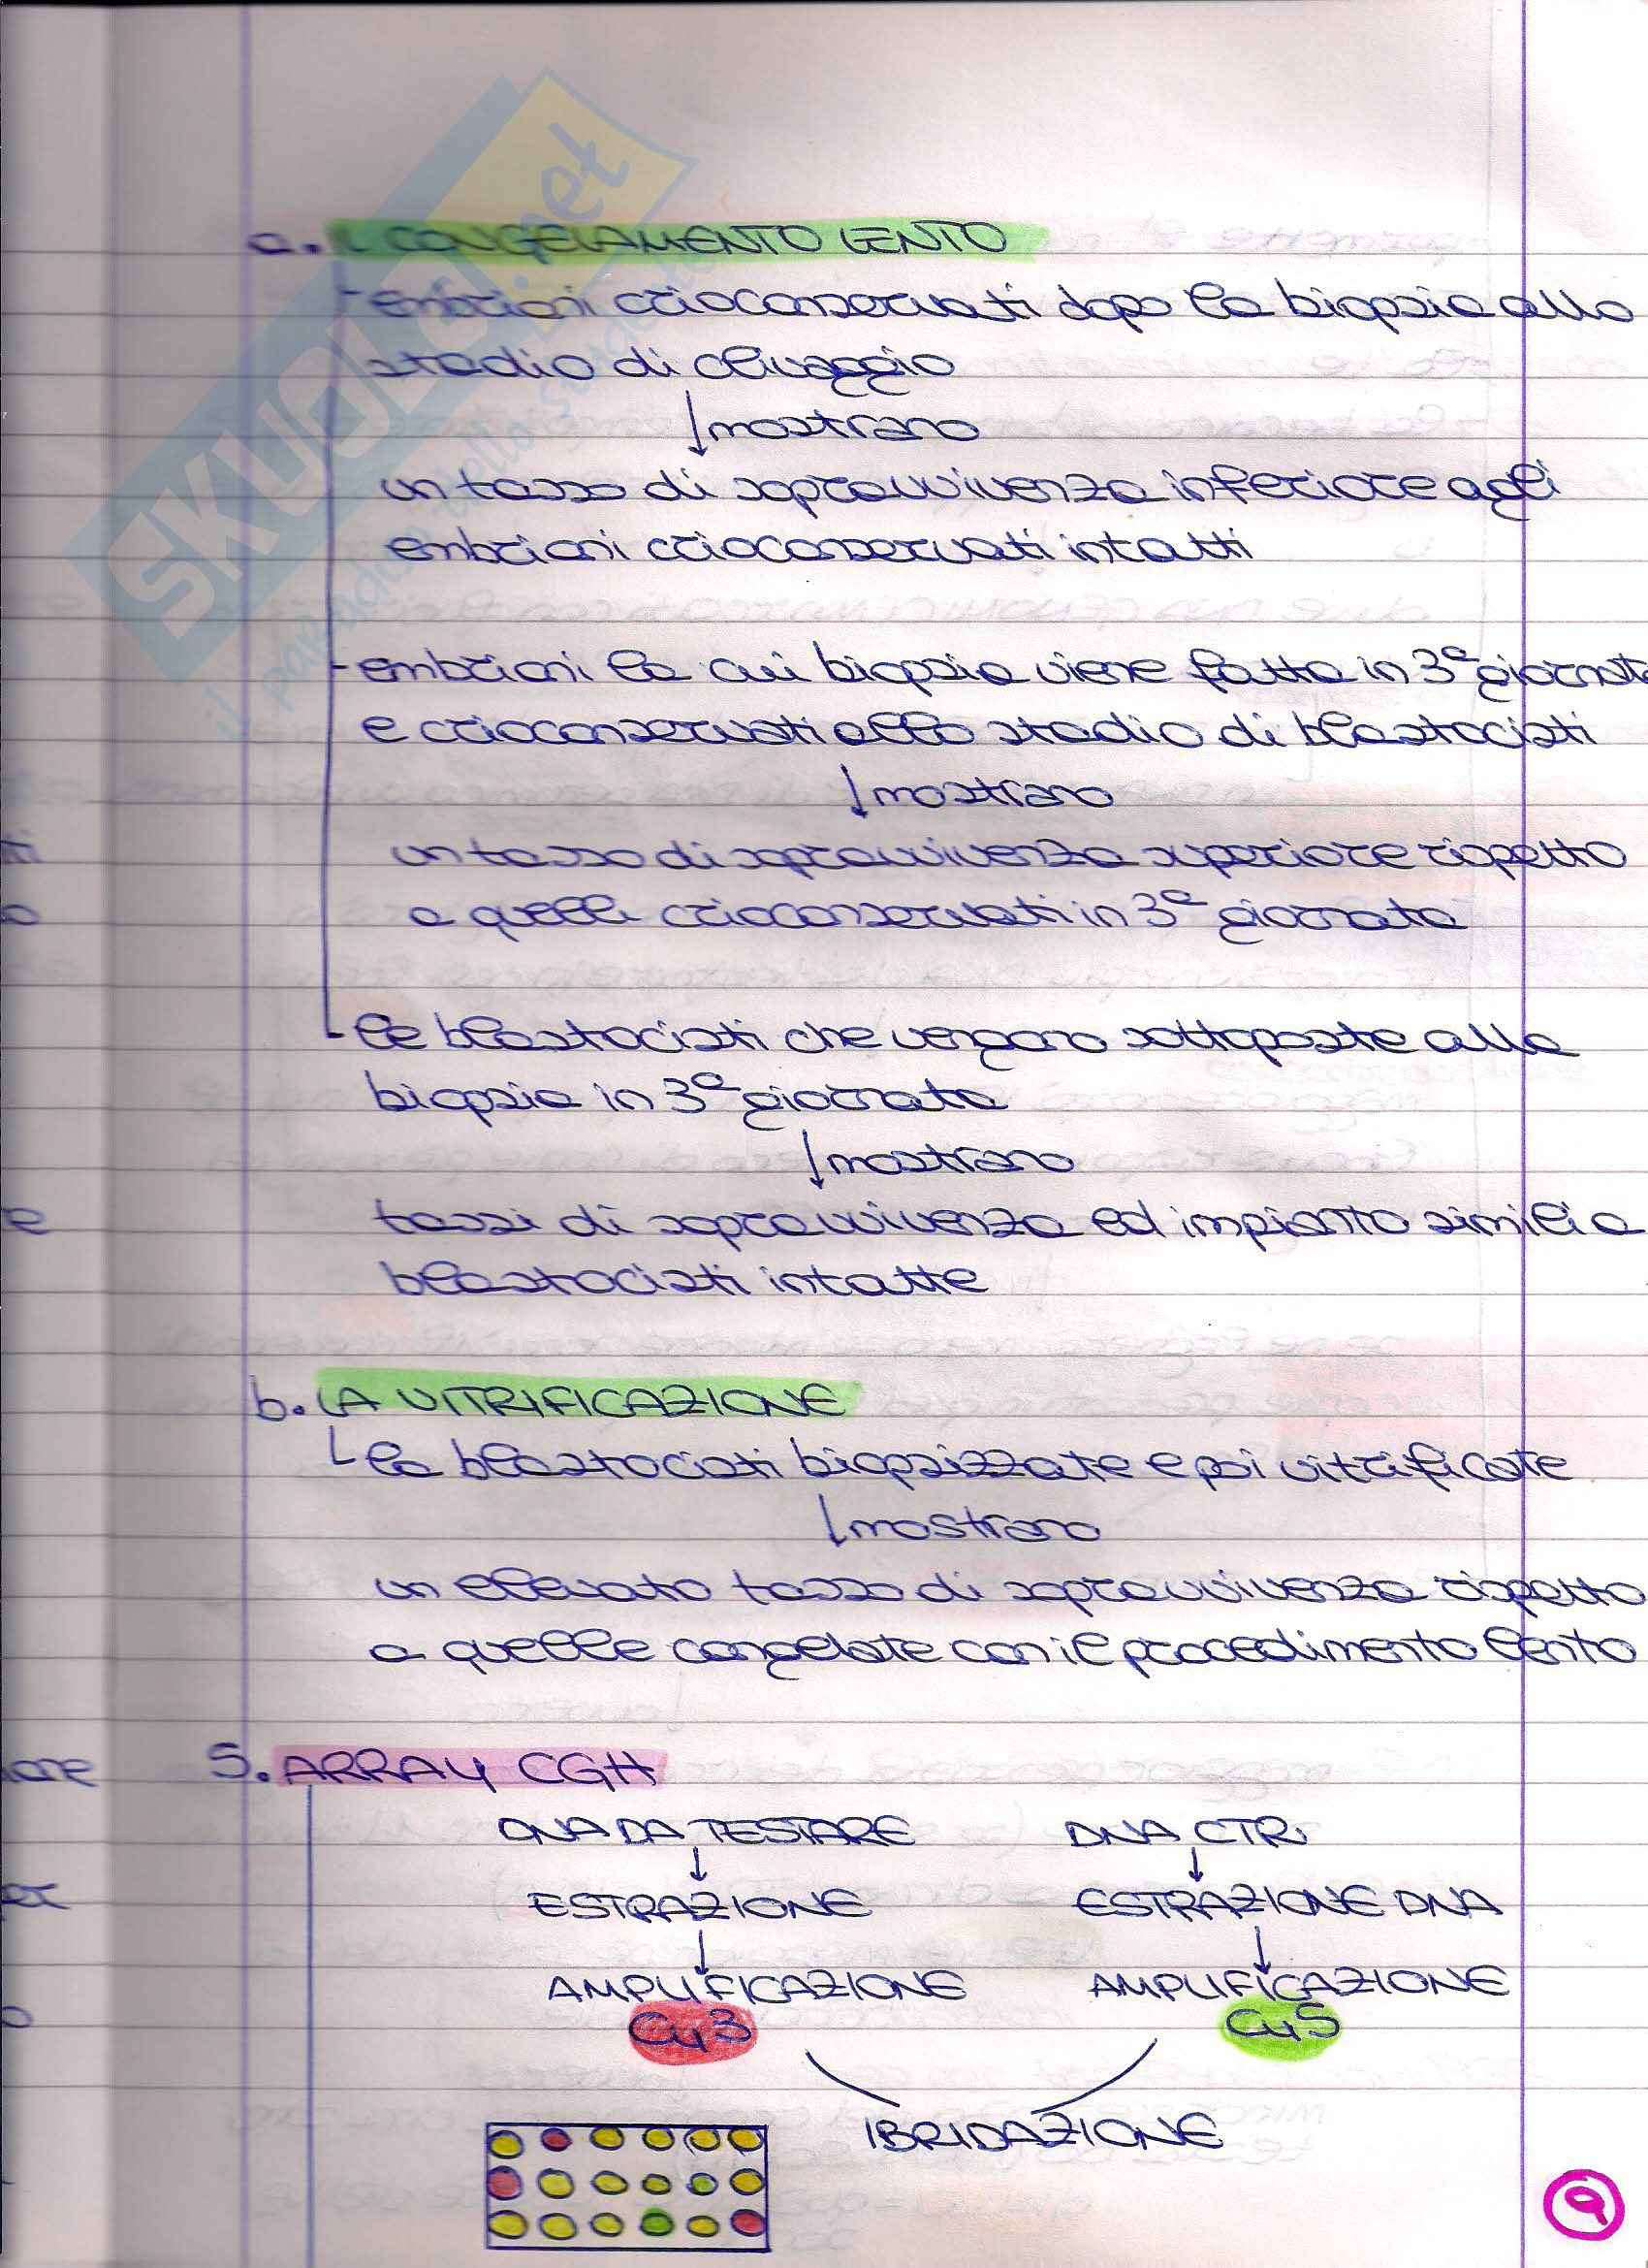 SKUOLA.net
il paradiso dello studente
a. IL CONGELAMENTO LENTO
- embrioni crioconservati dopo la biopsia allo
stadio di clivaggio
↓ mostrano
un tasso di sopravvivenza inferiore agli
embrioni crioconservati intatti
- embrioni la cui biopsia viene fatta in 3ª giornata
e crioconservati allo stadio di blastocisti
↓ mostrano
un tasso di sopravvivenza superiore rispetto
a quelli crioconservati in 3ª giornata
- le blastocisti che vengono sottoposte alla
biopsia in 3ª giornata
↓ mostrano
tassi di sopravvivenza ed impianto simili a
blastocisti intatte
b. LA VITRIFICAZIONE
la blastocisti biopsizzate e poi vitrificate
↓ mostrano
un elevato tasso di sopravvivenza rispetto
a quelle congelate con il procedimento lento
5. ARRAY CGH
DNA DA TESTARE DNA CTR
↓ ↓
ESTRAZIONE ESTRAZIONE DNA
↓ ↓
AMPLIFICAZIONE AMPLIFICAZIONE
Cy3 Cy5
IBRIDAZIONE
9